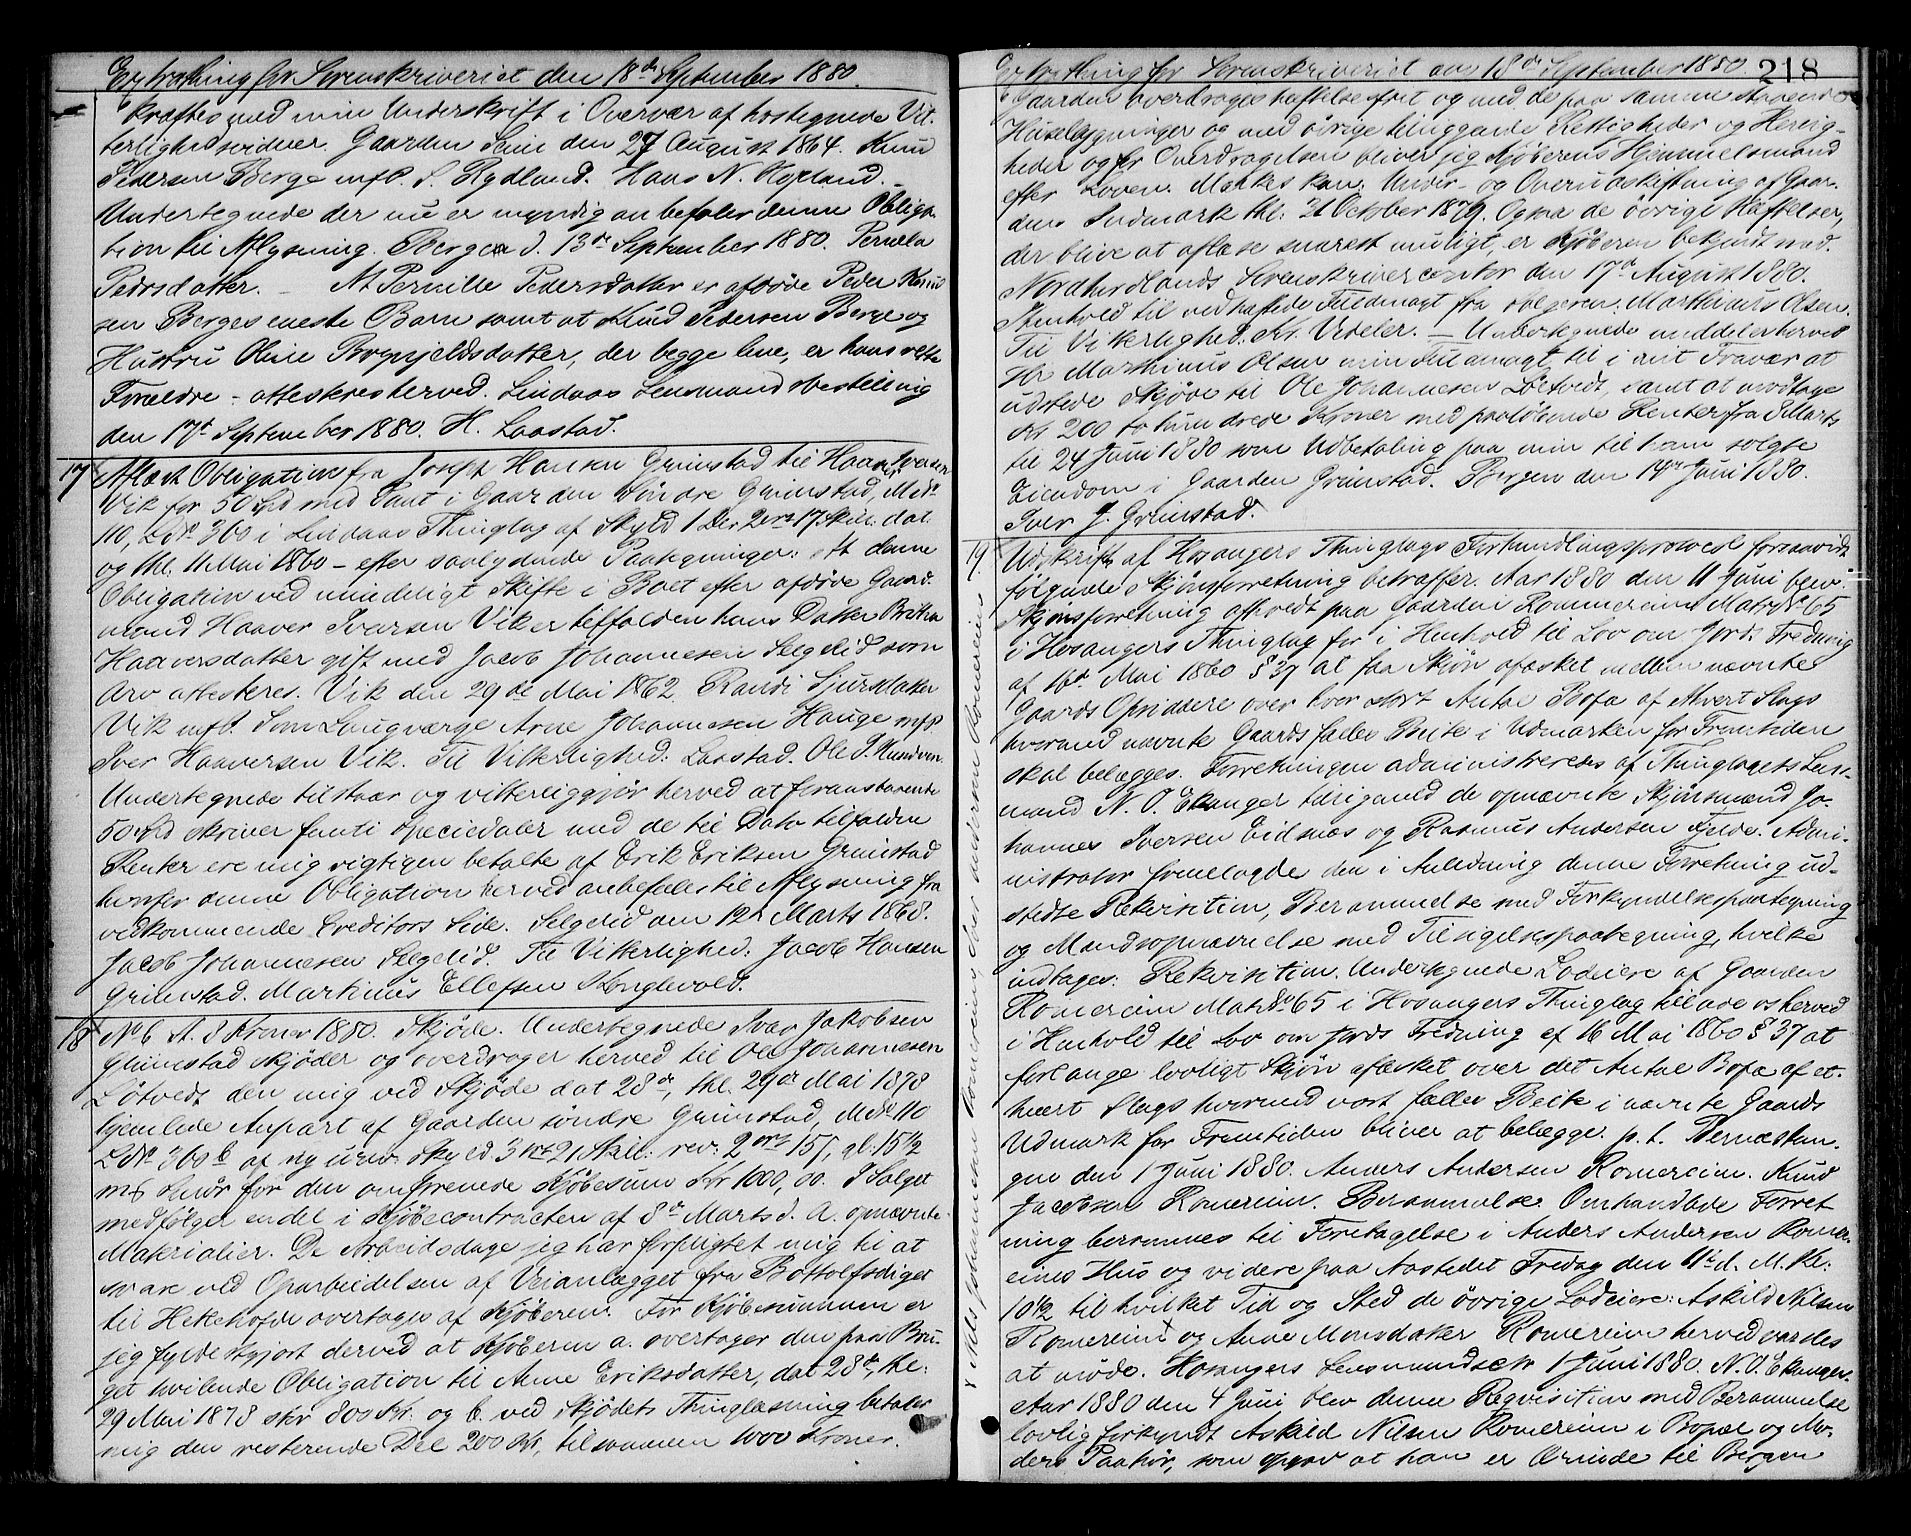 Extrathing for Sorenskriveriet den 18de September 1880.
kræftes med min Underskrift i Overvær af hostegnede Vit-
terlighedsvidner. Gaarden Seim den 27 August 1864. Knud
Pedersen Berge mfP. S. Rydland. Hans N. Kopland. –
Undertegnede der nu er myndig anbefaler denne Obliga-
tion til Aflysning. Bergen d. 13de September 1880. Pernela
Pedersdatter. – At Pernille Pedersdatter er afdöde Peder Knud
sen Berges eneste Barn samt at Knud Pedersen Berge og
Hustru Oline Brynjeldsdatter, der begge leve, er hans rette
Forældre – attesteres herved. Lindaas Lensmandsbestilling
den 17de September 1880. H. Laastad.
17 Aflæst Obligation fra Joseph Hansen Grimstad til Haaver Iversen
Vik for 50 Spd med Pant i Gaarden Söndre Grimstad, M.No
110, L.No 360 i Lindaas Thinglag af Skyld 1 Dlr 2 Ort 17 Skill: dat.
og thl. 11 Mai 1860 – efter saalydende Paategninger: Att denne
Obligation ved mindeligt Skifte i Boet efter afdöde Gaard-
mand Haaver Iversen Vik er tilfalden hans Datter Britha
Haaversdatter gift med Jacob Johannesen Selgelid som
Arv attesteres. Vik den 29de Mai 1862. Randi Sjursdatter
Vik mfP. Som Laugværge Arne Johannesen Hauge mfP
Iver Haaversen Vik. Til Vitterlighed: Laastad. Ole I. Hundven.
Undertegnede tilstaar og vitterliggjör herved at foranstaaende
50 Spd skriver femti speciedaler med de til Dato tilfaldne
Renter ere mig rigtigen betalte af Erik Eriksen Grimstad
hvorfor denne Obligation herved anbefales til Aflysning fra
vedkommende Creditors Side. Selgelid den 12te Marts 1868.
Jacob Johannesen Selgelid. Til Vitterlighed: Jacob Hansen
Grimstad. Martinus Ellefsen Konglevold.
18 No 6 A. 8 Kroner 1880. Skjöde. Undertegnede Ivar Jakobsen
Grimstad skjöder og overdrager herved til Ole Johannesen
Lötvedt den mig ved Skjöde dat 28de, thl. 29de Mai 1878
hjemlede Anpart af Gaarden söndre Grimstad, M.No 110
L.No 360 b af ny urev. skyld 3 Ort 21 Skill: rev: 2 Ort 15 /, gl. 15 1/2
m/ Smör for den omforenede Kjöbesum Kr 1000,00. I Salget
medfölger endel i Kjöbecontracten af 8de Marts d. A. opnævnte
Materialier. De Arbeidsdage jeg har forpligtet mig til at
svare ved Oparbeidelsen af Veianlægget fra Bottolfsdiget
til Hekkehofde overtages af Kjöberen. For Kjöbesummen er
jeg fyldestgjort derved at Kjöberen a. overtager den paa Bru-
get hvilende Obligation til Anne Eriksdatter, dat 28de, thl:
29 Mai 1878 stor 800 Kr. og b. ved Skjödets Thinglæsning betaler
mig den resterende Del 200 Kr, tilsammen 1000 Kroner.
Extrathing for Sorenskriveriet den 18de September 1880. 218
Gaarden overdrages hæftelsesfrit og med de paa samme staaende
Huselbygninger og med övrige tilliggende Rettigheder og Herlig-
heder og for Overdragelsen bliver jeg Kjöberens Hjemmelsmand
efter Loven. Mærkes kan: Under- og Overudskiftning af Gaar-
dens Indmark thl: 21 October 1879. Ogsaa de övrige Hæftelser,
der blive at aflæse snarest muligt, er Kjöberen bekjendt med.
Nordhordlands Sorenskrivercontor den 17de August 1880.
I henhold til vedhæftede Fuldmagt fra sælgeren: Marthinus Olsen.
Til Vitterlighed: Kr. Vedeler. – Undertegnede meddeler herved
Hr Marthinus Olsen min Fuldmagt til i mit Fravær at
udstede Skjöde til Ole Johannesen Lötvedt, samt at modtage
Kr 200 to hundrede Kroner med paalöbende Renter fra 8 Marts
til 24 Juni 1880 som Udbetaling paa min til ham solgte
Eiendom i Gaarden Grimstad. Bergen den 14de Juni 1880.
Iver J. Grimstad.
19. Udskrift af Hosangers Thinglags Forhandlingsprotocol forsaavidt
fölgende Skjönsforretning betræffer. Aar 1880 den 11 Juni blev
Skjönsforretning afholdt paa Gaarden Rommereim Matr No 65
i Hosangers Thinglag for i Henhold til Lov om Jords Fredning
af 16de Mai 1860 § 37 at faa Skjön afæsket mellem nævnte
Gaards Opsiddere over hvor stort Antal Bofæ af ethvert Slags
hvormed nævnte Gaards fælles Beite i Udmarken for Fremtiden
skal belægges. Forretningen administreredes af Thinglagets Lens-
mand N. O. Ekanger tilligemed de opnævnte Skjönsmænd Jo-
hannes Iversen Eidsnæs og Rasmus Andersen Fjelde. Admi-
nistrator fremlagde den i Anledning denne Forretning ud-
stedte Rekvisition, Berammelse med Forkyndelsespaategning
og Mandsopnævnelse med Tilsigelsespaategning, hvilke
indtages: Rekvisition. Undertegnede Lodeiere af Gaarden
Romereim Matr No 65 i Hosangers Thinglag tillade os herved
i Henhold til Lov om Jords Fredning af 16 Mai 1860 § 37 at
forlange lovligt Skjön afæsket over det Antal Bofæ af et-
hvert Slags hvormed vort fælles Beite i nævnte Gaards
Udmark for Fremtiden bliver at belægge. p. t. Bernæstan-
gen den 1 Juni 1880. Anders Andersen Romereim. Knud
Jacobsen Romereim. Berammelse. Omhandlede Forret
ning berammes til Foretagelse i Anders Andersen Romer-
eims Hus og videre paa Aastedet Fredag den 11te d. M. Kl:
10 1/2 til hvilket Tid og Sted de övrige Lodeiere: Askild Nilsen
Romereim + og Anne Monsdatter Romereim herved varsles
at möde. Hosangers Lensmandsctr 1 Juni 1880. N. O. Ekanger.
Aar 1880 den 4 Juni blev denne Reqvisition med Berammelse
lovlig forkyndt Askild Nilsen Romereim i Bopæl og Mo-
ders Paahör, som opgav at han er Ærinde til Bergen
+ Nils Johannesen Romereim, Anders Andersen Romereim